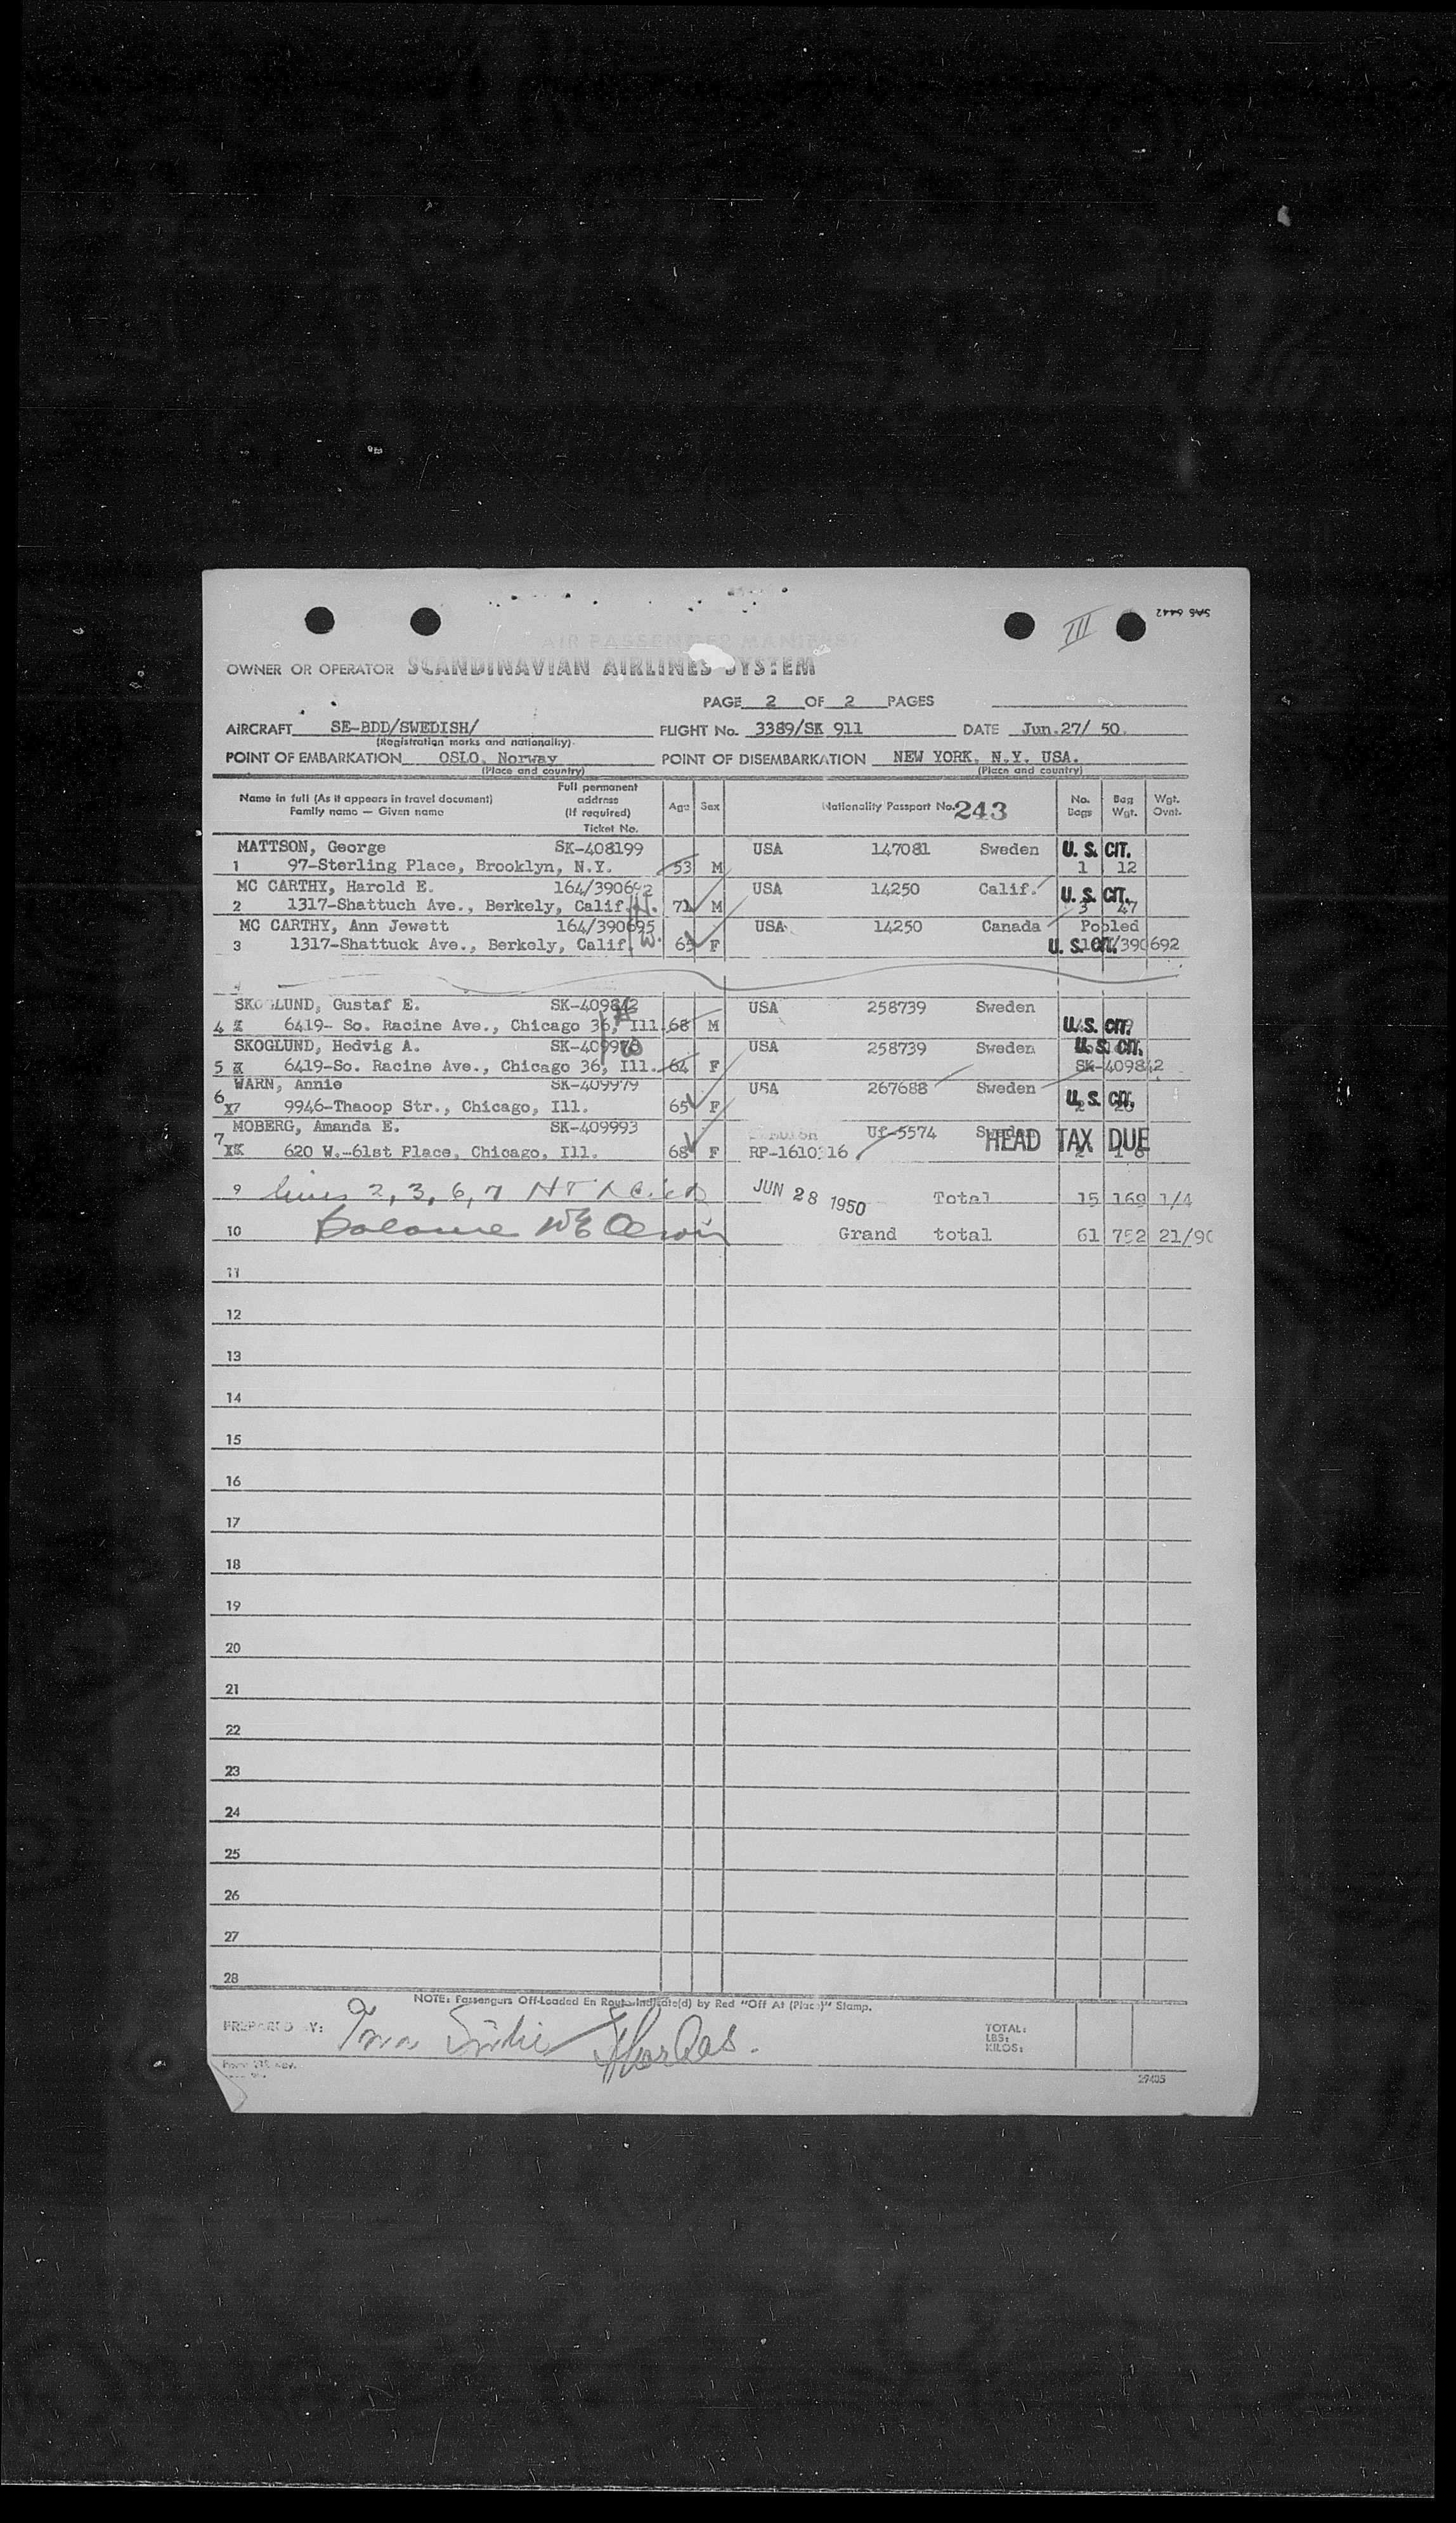 SAS 6442
III
AIR PASSENGER MANIFEST
OWNER OR OPERATOR SCANDINAVIAN AIRLINES SYSTEM
PAGE 2 OF 2 PAGES
AIRCRAFT SE-BDD/SWEDISH/ FLIGHT No. 3389/SK 911 DATE Jun.27/ 50.
(Registration marks and nationality)
POINT OF EMBARKATION OSLO, Norway POINT OF DISEMBARKATION NEW YORK, N.Y. USA.
(Place and country) (Place and country)
Name in full (As it appears in travel document) Family name — Given name Full permanent address (if required) Ticket No. Age Sex Nationality Passport No. 243 No. Bags Bag Wgt. Wgt. Ovnt.
MATTSON, George SK-408199 USA 147081 Sweden U. S. CIT.
1 97-Sterling Place, Brooklyn, N.Y. 53 M 1 12
MC CARTHY, Harold E. 164/390692 USA 14250 Calif. U. S. CIT.
2 1317-Shattuch Ave., Berkely, Calif. H. 71 M 3 47
MC CARTHY, Ann Jewett 164/390695 USA 14250 Canada Pooled
3 1317-Shattuck Ave., Berkely, Calif. W. 65 F U. S. CIT. /390692
SKOGLUND, Gustaf E. SK-409842 USA 258739 Sweden
4 6419- So. Racine Ave., Chicago 36, Ill. H 68 M U. S. CIT.
SKOGLUND, Hedvig A. SK-409978 USA 258739 Sweden U. S. CIT.
5 6419-So. Racine Ave., Chicago 36, Ill. W 64 F SK-409842
WARN, Annie SK-409979 USA 267688 Sweden
6 X7 9946-Thaoop Str., Chicago, Ill. 65 F U. S. CIT.
MOBERG, Amanda E. SK-409993 Uf-5574 Sweden HEAD TAX DUE
7 620 W.-61st Place, Chicago, Ill. 68 F RP-1610316
9 lines 2, 3, 6, 7 HT JUN 28 1950 Total 15 169 1/4
10 Grand total 61 752 21/90
11
12
13
14
15
16
17
18
19
20
21
22
23
24
25
26
27
28
NOTE: Passengers Off-Loaded En Route Indicate(d) by Red "Off At (Place)" Stamp.
PREPARED BY:
TOTAL:
LBS:
KILOS:
27405